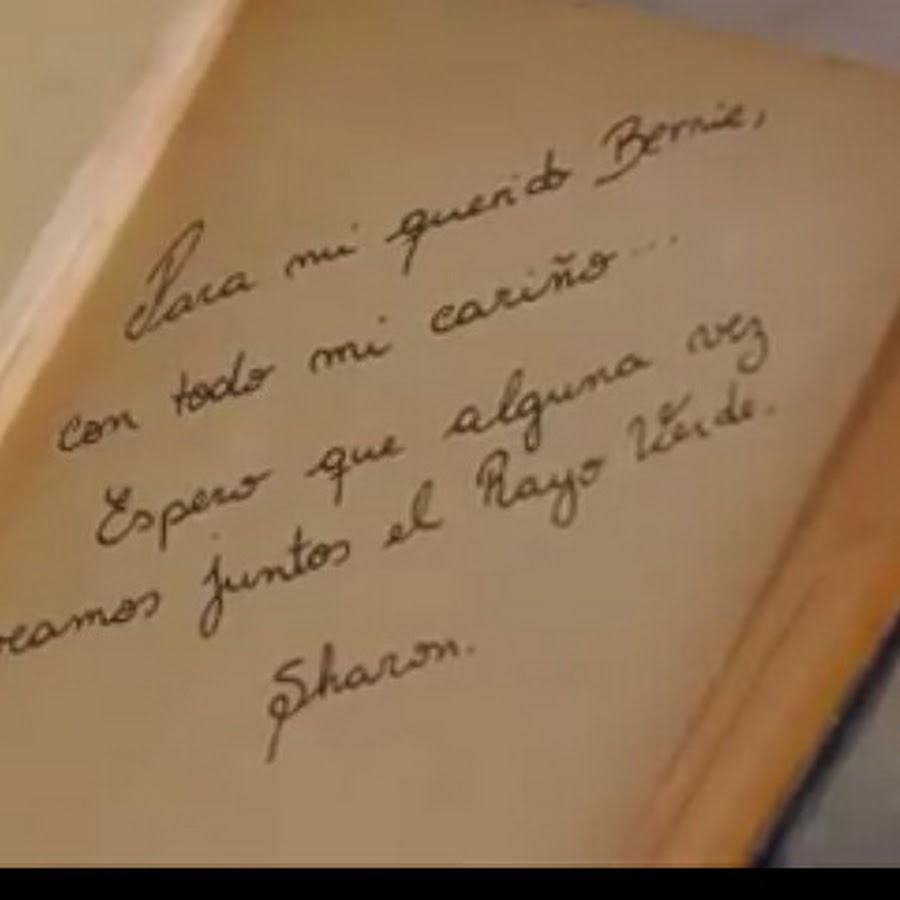 Para mi querido Bernie,
con todo mi cariño...
Espero que alguna vez
veamos juntos el Rayo Verde.
Sharon.